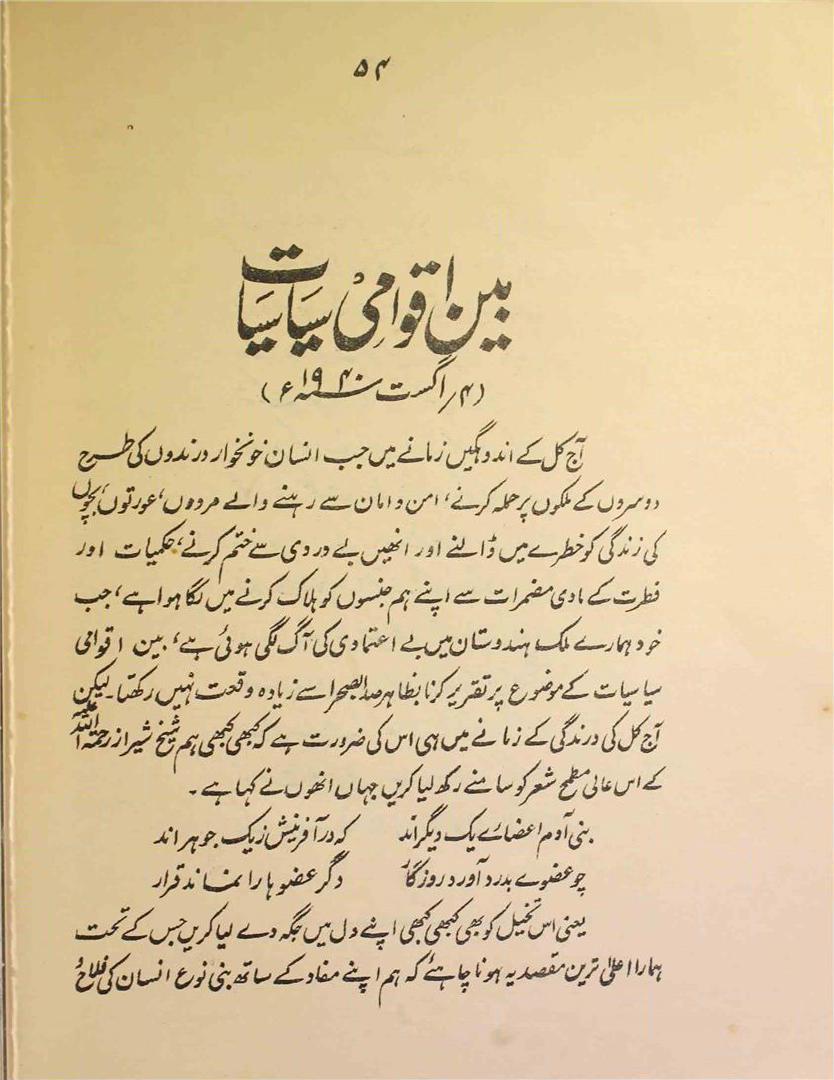 ۵۴
بین اقوامی سیاسیات
(۴؍ اگست ۱۹۴۰ء)
آج کل کے اندوہگیں زمانے میں جب انسان خونخوار درندوں کی طرح
دوسروں کے ملکوں پر حملہ کرنے، امن و امان سے رہنے والے مردوں، عورتوں، بچوں
کی زندگی کو خطرے میں ڈالنے اور انھیں بے دردی سے ختم کرنے، حکمیات اور
فطرت کے مادی مضمرات سے اپنے ہم جنسوں کو ہلاک کرنے میں لگا ہوا ہے، جب
خود ہمارے ملک ہندوستان میں بے اعتمادی کی آگ لگی ہوئی ہے، بین اقوامی
سیاسیات کے موضوع پر تقریر کرنا بظاہر صدا بصحرا سے زیادہ وقعت نہیں رکھتا۔ لیکن
آج کل کی درندگی کے زمانے میں ہی اس کی ضرورت ہے کہ کبھی کبھی ہم شیخ شیراز رحمۃ اللہ علیہ
کے اس عالی مطمح شعر کو سامنے رکھ لیا کریں جہاں انھوں نے کہا ہے۔
بنی آدم اعضاے یک دیگر اند کہ در آفرینش ز یک جوہر اند
چو عضوے بدرد آورد روزگار دگر عضوہا را نماند قرار
یعنی اس تخیل کو بھی کبھی کبھی اپنے دل میں جگہ دے لیا کریں جس کے تحت
ہمارا اعلیٰ ترین مقصد یہ ہونا چاہئے کہ ہم اپنے مفاد کے ساتھ بنی نوع انسان کی فلاح و